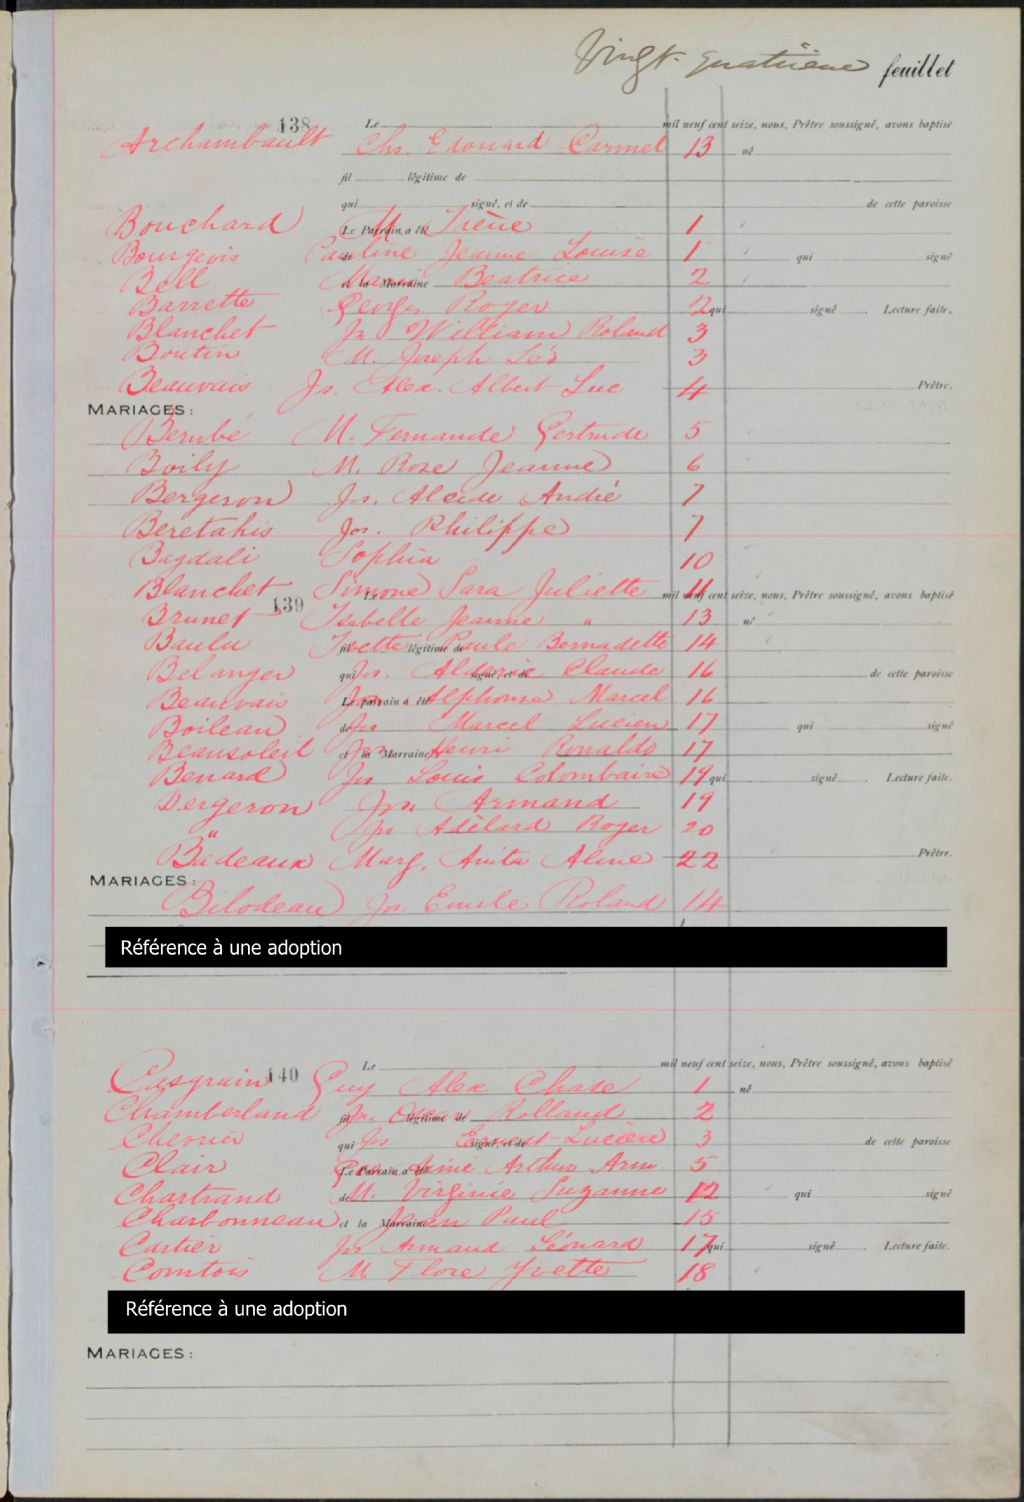 Vingt-quatrième feuillet
138 Le mil neuf cent seize, nous, Prêtre soussigné, avons baptisé
Archambault Chs. Edouard Carmel 13 né
fil légitime de
qui signé, et de de cette paroisse
Bouchard M. Irène 1
Le Parrain a été
Bourgeois Pauline Jeanne Louise 1
de qui signé
Bell Marie Beatrice 2
et la Marraine
Barrette Georges Roger 2
qui signé Lecture faite.
Blanchet Js William Roland 3
Boutin M. Joseph Léo 3
Beauvais Js. Alex. Albert Luc 4
Prêtre.
MARIAGES:
Berubé M. Fernande Gertrude 5
Boily M. Rose Jeanne 6
Bergeron Js. Alcide André 7
Beretahis Jos. Philippe 7
Bagdali Sophia 10
Blanchet Simone Sara Juliette 11
139 Le mil neuf cent seize, nous, Prêtre soussigné, avons baptisé
Brunet Isabelle Jeanne " 13 né
Baulu Yvette Paule Bernadette 14
fil légitime de
Belanger Js. Alderic Claude 16
qui signé, et de de cette paroisse
Beauvais Jos Alphonse Marcel 16
Le parrain a été
Boileau Js Marcel Lucien 17
de qui signé
Beausoleil Jos Henri Ronaldo 17
et la Marraine
Benard Js Louis Colombaire 19
qui signé Lecture faite.
Bergeron Jos. Armand 19
" Js Adélard Roger 20
Badeaux Marg. Anita Aline 22
Prêtre.
MARIAGES:
Bilodeau Jos. Emile Roland 14
Référence à une adoption
140 Le mil neuf cent seize, nous, Prêtre soussigné, avons baptisé
Casgrain Guy Alex Chase 1 né
Chamberland Js. Oscar Rolland 2
fil légitime de
Chevrier Js. Ernest Lucien 3
qui signé, et de de cette paroisse
Clair Geo Aimé Arthur Arm 5
Le Parrain a été
Chartrand M. Virginie Suzanne 12
de qui signé
Charbonneau Jean Paul 15
et la Marraine
Cartier Js Armand Léonard 17
qui signé Lecture faite.
Comtois M Flore Yvette 18
Référence à une adoption
MARIAGES: